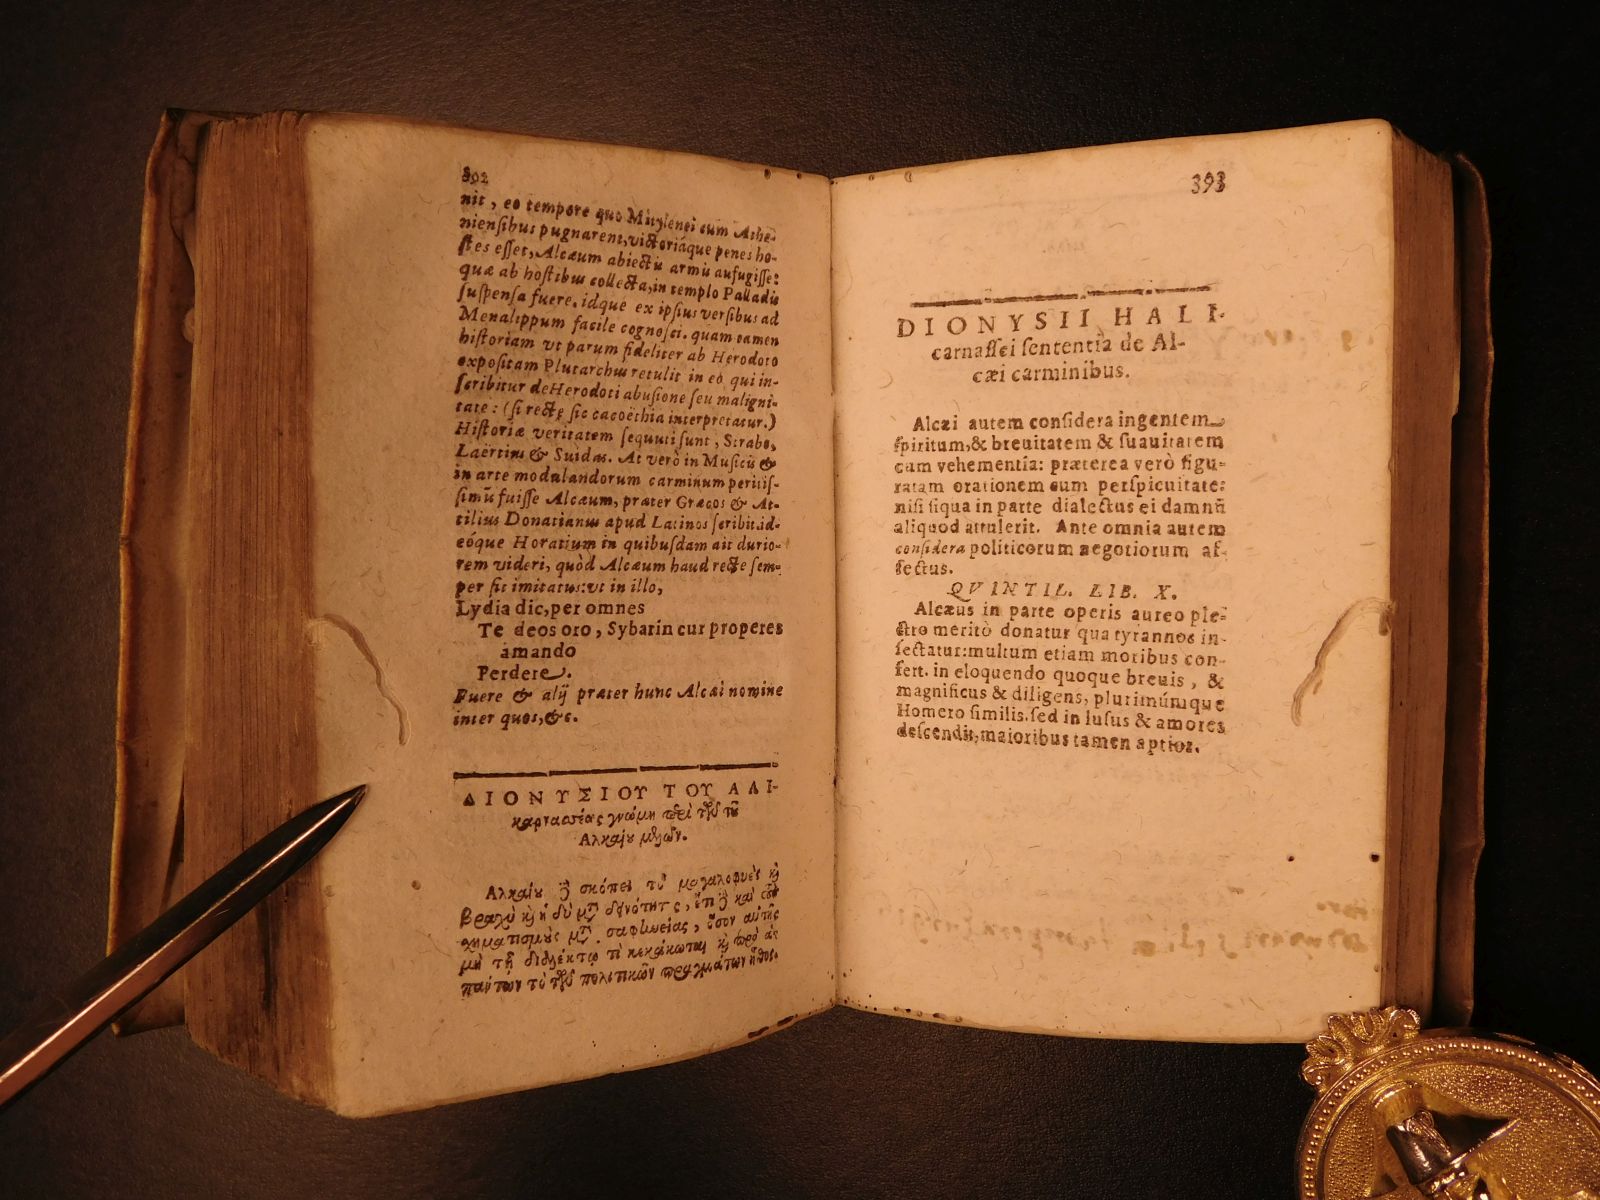 392
nit, eo tempore quo Mitylenei cum Athe-
niensibus pugnarent, victoriáque penes ho-
stes esset, Alcæum abiectis armis aufugisse:
quæ ab hostibus collecta, in templo Palladis
suspensa fuere. idque ex ipsius versibus ad
Menalippum facile cognosci. quam tamen
historiam vt parum fideliter ab Herodoto
expositam Plutarchus retulit in eo qui in-
scribitur de Herodoti abusione seu maligni-
tate: (si rectę sic cacoëthia interpretatur.)
Historiæ veritatem sequuti sunt, Strabo,
Laërtius & Suidas. At verò in Musicis &
in arte modulandorum carminum peritis-
simū fuisse Alcæum, præter Græcos & At-
tilius Donatianus apud Latinos scribit. id-
eóque Horatium in quibusdam ait durio-
rem videri, quòd Alcæum haud recte sem-
per sit imitatus: vt in illo,
Lydia dic, per omnes
Te deos oro, Sybarin cur properes
amando
Perdere.
Fuere & alij præter hunc Alcæi nomine
inter quos, &c.
ΔΙΟΝΥΣΙΟΥ ΤΟΥ ΑΛΙ-
καρνασσέας γνώμη περὶ τῶν τοῦ
Αλκαίου μελῶν.
Αλκαίου δὲ σκόπει τὸ μεγαλοφυὲς καὶ
βραχὺ καὶ ἡδὺ μετὰ δεινότητος, ἔτι δὲ καὶ τοὺς
σχηματισμοὺς μετὰ σαφηνείας, ὅσον αὐτῆς
μὴ τῇ διαλέκτῳ τὶ κεκάκωται καὶ πρὸ ἁ-
πάντων τὸ τῶν πολιτικῶν πραγμάτων ἦθος.
393
DIONYSII HALI-
carnassei sententia de Al-
cæi carminibus.
Alcæi autem considera ingentem
spiritum, & breuitatem & suauitatem
cum vehementia: præterea verò figu-
ratam orationem cum perspicuitate:
nisi siqua in parte dialectus ei damnū
aliquod attulerit. Ante omnia autem
considera politicorum negotiorum af-
fectus.
QVINTIL. LIB. X.
Alcæus in parte operis aureo ple-
ctro meritò donatur qua tyrannos in-
sectatur: multum etiam moribus con-
fert. in eloquendo quoque breuis, &
magnificus & diligens, plurimúmque
Homero similis. sed in lusus & amores
descendit, maioribus tamen aptior.